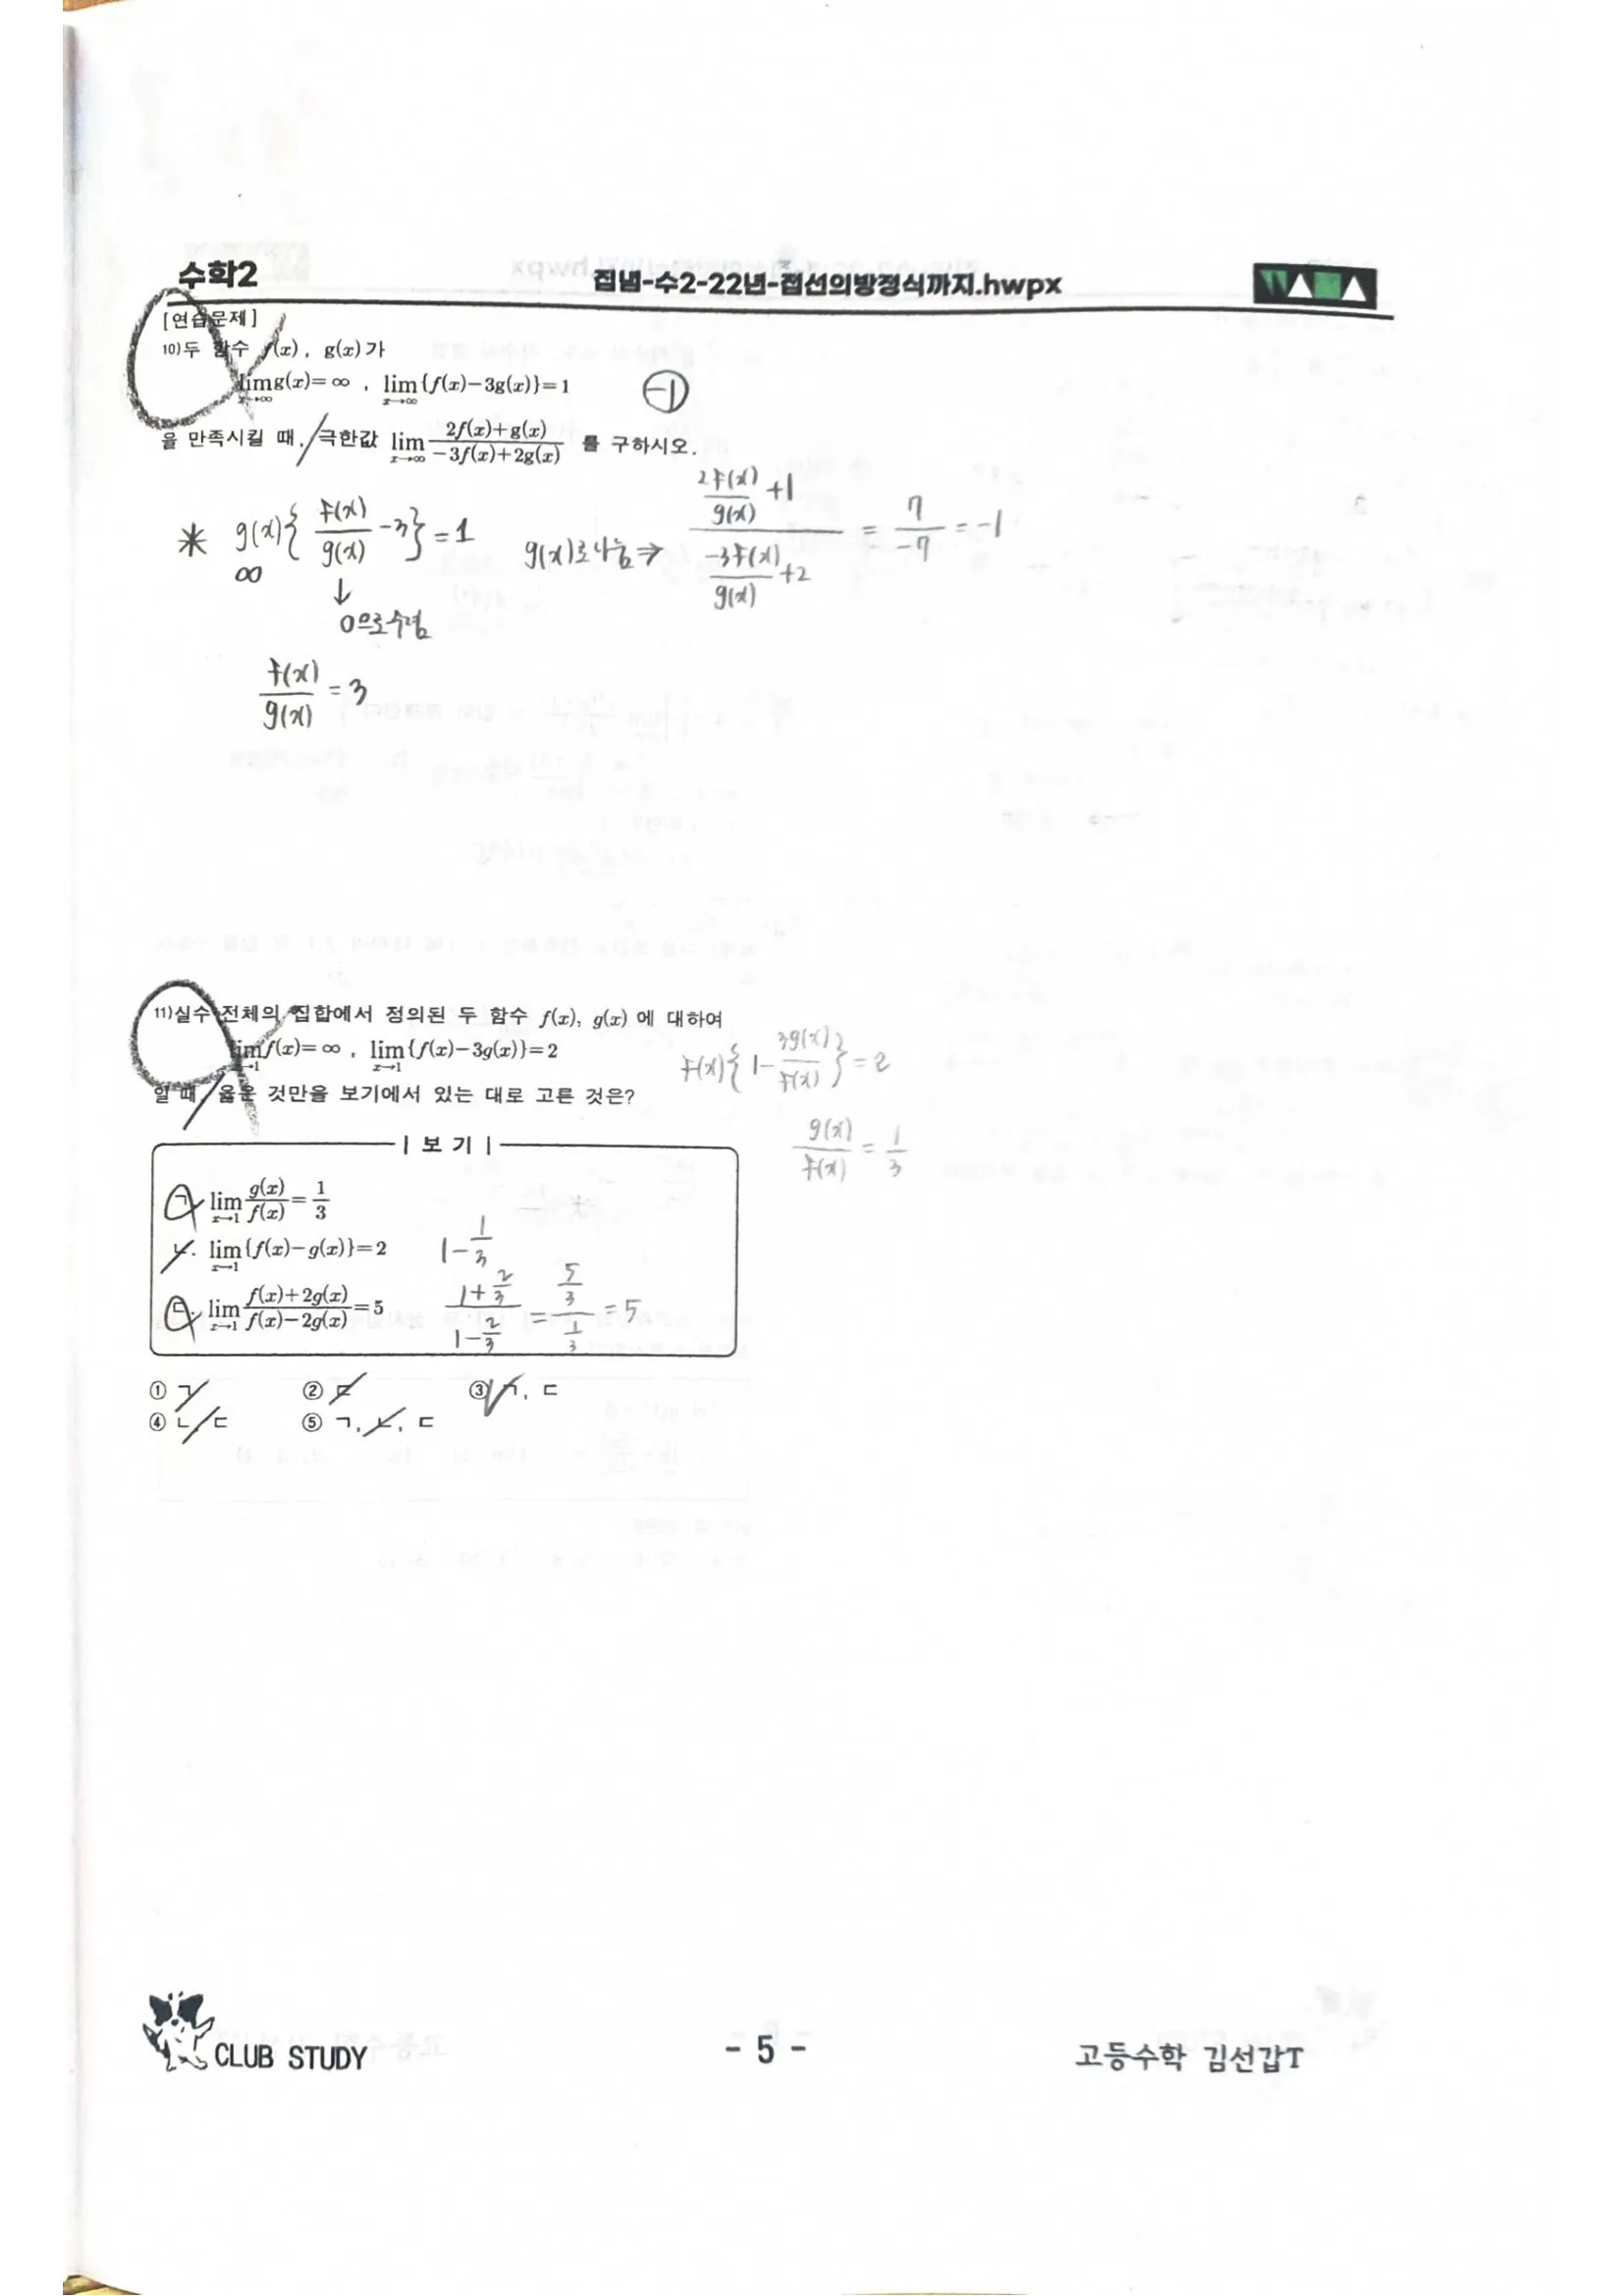 수학2
접념-수2-22년-접선의방정식까지.hwpx
[연습문제]
10)두 함수 f(x), g(x)가
lim x→∞ g(x)=∞ , lim x→∞ {f(x)-3g(x)}=1
㊀1
을 만족시킬 때, 극한값 lim x→∞ (2f(x)+g(x))/(-3f(x)+2g(x)) 를 구하시오.
* g(x){f(x)/g(x) -3}=1
∞ ↓
0으로수렴
f(x)/g(x) = 3
g(x)로나눔⇒ (2f(x)/g(x) +1)/(-3f(x)/g(x) +2) = 7/-7 = -1
11)실수 전체의 집합에서 정의된 두 함수 f(x), g(x) 에 대하여
lim x→1 f(x)=∞ , lim x→1 {f(x)-3g(x)}=2
일 때, 옳은 것만을 보기에서 있는 대로 고른 것은?
f(x){1- 3g(x)/f(x)}=2
g(x)/f(x) = 1/3
| 보 기 |
ㄱ. lim x→1 g(x)/f(x) = 1/3
ㄴ. lim x→1 {f(x)-g(x)}=2 1-1/3
ㄷ. lim x→1 (f(x)+2g(x))/(f(x)-2g(x)) = 5 (1+2/3)/(1-2/3) = (5/3)/(1/3) = 5
① ㄱ ② ㄷ ③ ㄱ, ㄷ
④ ㄴ, ㄷ ⑤ ㄱ, ㄴ, ㄷ
CLUB STUDY
- 5 -
고등수학 김선갑T